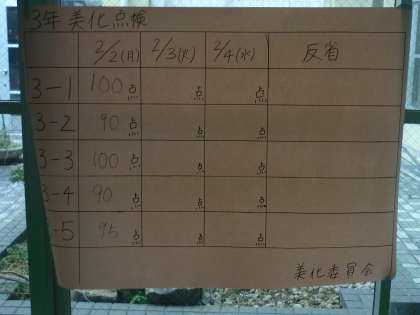 3年 美化点検
2/2(月) 2/3(火) 2/4(水) 反省
3-1 100点 点 点
3-2 90点 点 点
3-3 100点 点 点
3-4 90点 点 点
-5 95点 点 点
美化委員会